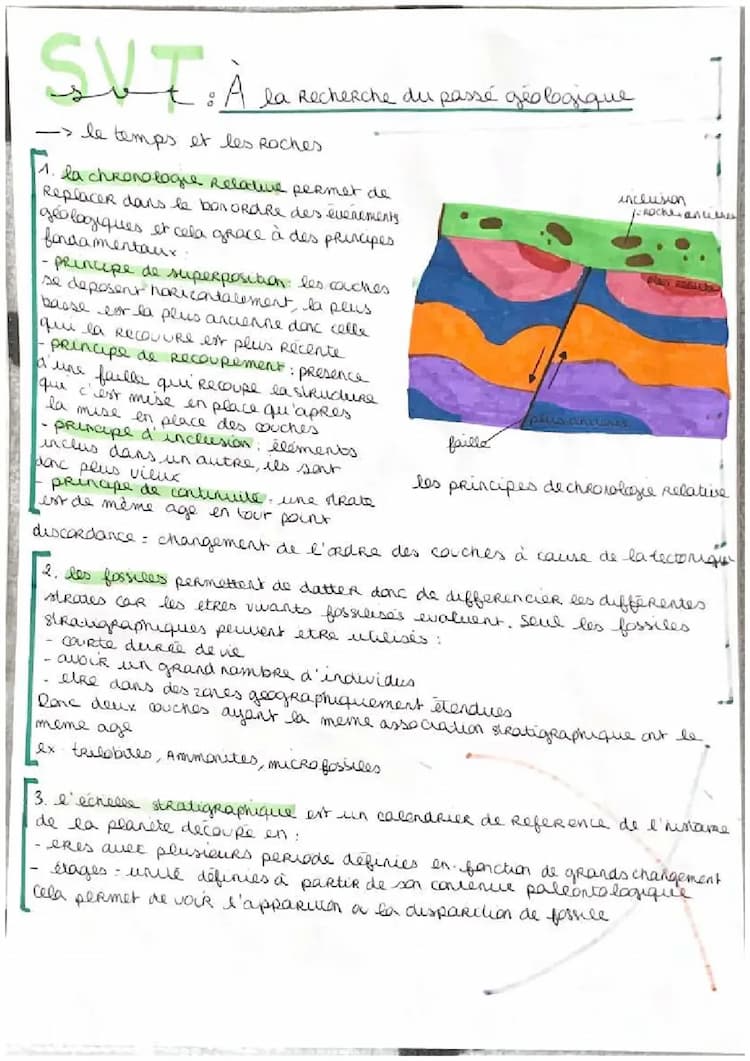 SVT
svt : À la recherche du passé géologique
—> le temps et les roches
1. la chronologie relative permet de
replacer dans le bon ordre des événements
géologiques et cela grace à des principes
fondamentaux :
- principe de superposition : les couches
se déposent horizontalement, la plus
basse est la plus ancienne donc celle
qui la recouvre est plus récente
- principe de recoupement : présence
d'une faille qui recoupe la structure
qui c'est mise en place qu'après
la mise en place des couches
- principe d'inclusion : éléments
inclus dans un autre, ils sont
donc plus vieux
- principe de continuité : une strate
est de même age en tout point
inclusion
roche ancienne
plus récente
plus ancienne
faille
les principes de chronologie relative
discordance = changement de l'ordre des couches à cause de la tectonique
2. les fossiles permettent de datter donc de différencier les différentes
strates car les etres vivants fossilisés évoluent. Seul les fossiles
stratigraphiques peuvent etre utilisés :
- courte durée de vie
- avoir un grand nombre d'individus
- etre dans des zones géographiquement étendues
Donc deux couches ayant la meme association stratigraphique ont le
meme age
ex : trilobites, Ammonites, microfossiles
3. l'échelle stratigraphique est un calendrier de reference de l'histoire
de la planète découpé en :
- ères avec plusieurs periode définies en fonction de grands changement
- étages = unité définies à partir de son contenue paléontologique
Cela permet de voir l'apparition ou la disparition de fossile